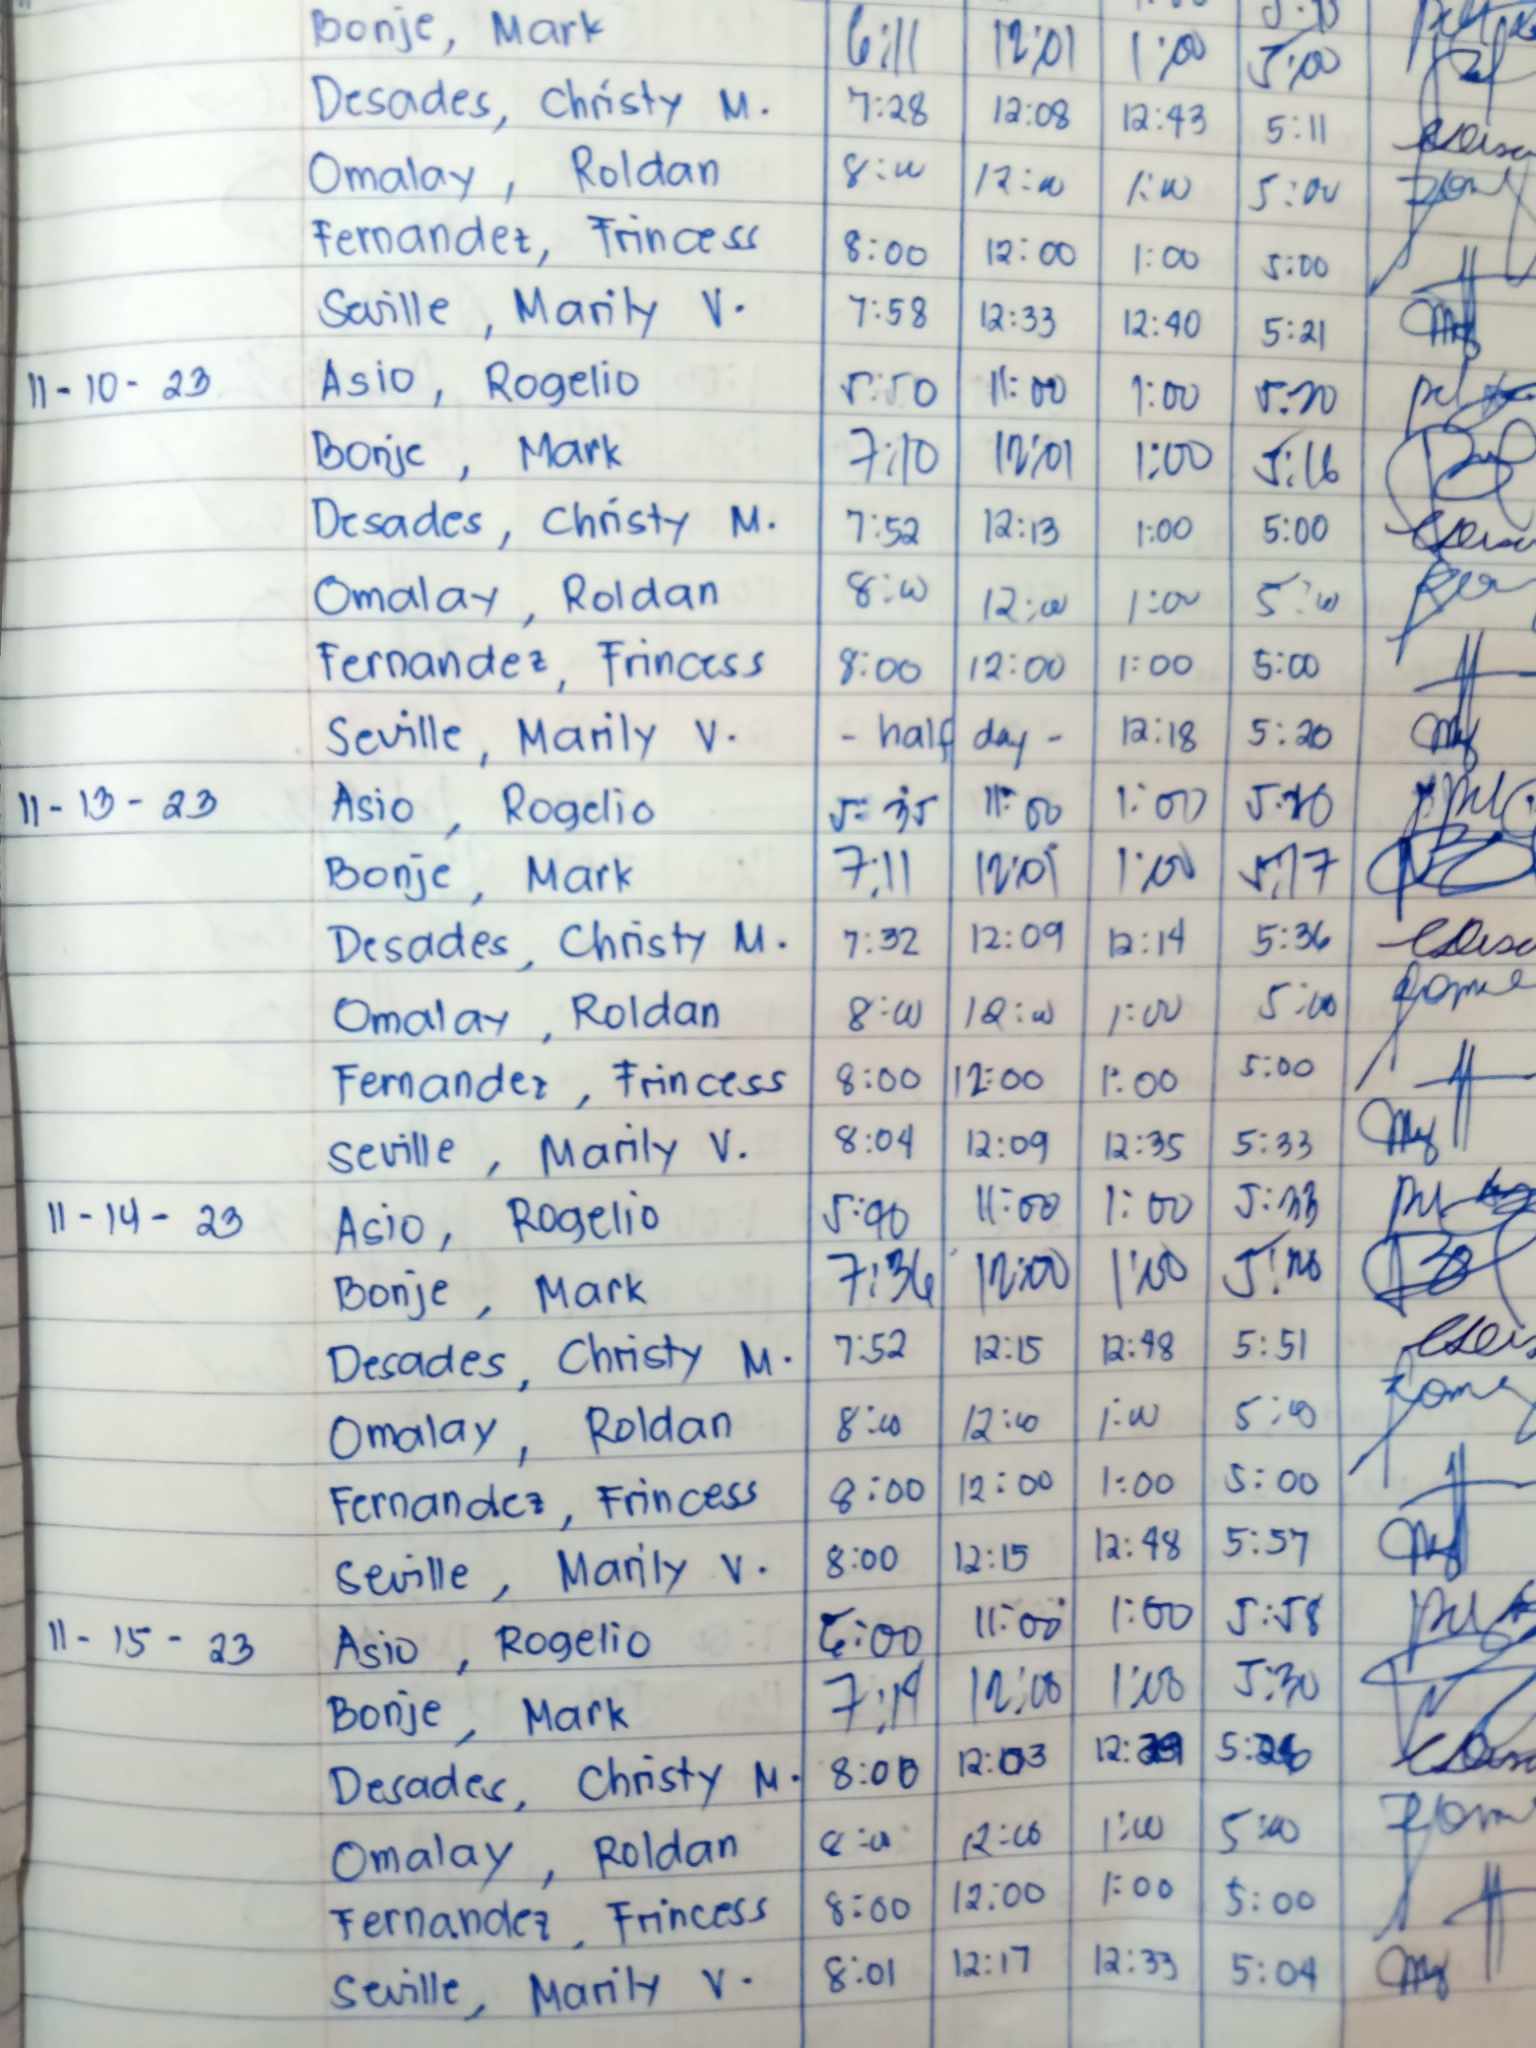 Bonje, Mark 6:11 12:01 1:00 5:00
Desades, Christy M. 7:28 12:08 12:43 5:11
Omalay, Roldan 8:00 12:00 1:00 5:00
Fernandez, Frincess 8:00 12:00 1:00 5:00
Seville, Marily V. 7:58 12:33 12:40 5:21
11-10-23 Asio, Rogelio 5:50 11:00 1:00
Bonje, Mark 7:10 12:01 1:00 5:16
Desades, Christy M. 7:52 12:13 1:00 5:00
Omalay, Roldan 8:00 12:00 1:00 5:00
Fernandez, Frincess 8:00 12:00 1:00 5:00
Seville, Marily V. - half day - 12:18 5:20
11-13-23 Asio, Rogelio 5:35 11:00 1:00
Bonje, Mark 7:11 12:01 1:00 5:17
Desades, Christy M. 7:32 12:09 12:14 5:36
Omalay, Roldan 8:00 12:00 1:00 5:00
Fernandez, Frincess 8:00 12:00 1:00 5:00
Seville, Marily V. 8:04 12:09 12:35 5:33
11-14-23 Asio, Rogelio 11:00 1:00 5:33
Bonje, Mark 7:36 12:00 1:00
Desades, Christy M. 7:52 12:15 12:48 5:51
Omalay, Roldan 8:00 12:00 1:00 5:00
Fernandez, Frincess 8:00 12:00 1:00 5:00
Seville, Marily V. 8:00 12:15 12:48 5:57
11-15-23 Asio, Rogelio 6:00 11:00 1:00 5:58
Bonje, Mark 7:19 12:00 1:00 5:30
Desades, Christy M. 8:00 12:03
Omalay, Roldan 8:00 12:00 1:00 5:00
Fernandez, Frincess 8:00 12:00 1:00 5:00
Seville, Marily V. 8:01 12:17 12:33 5:04